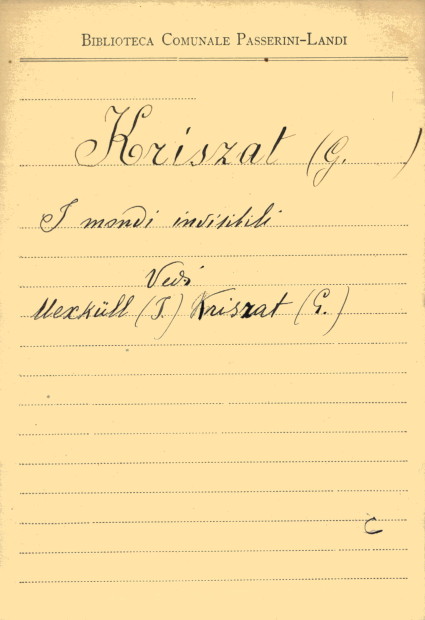 BIBLIOTECA COMUNALE PASSERINI-LANDI
Kriszat (G. )
I mondi invisibili
Vedi
Uexküll (J.) Kriszat (G.)
C